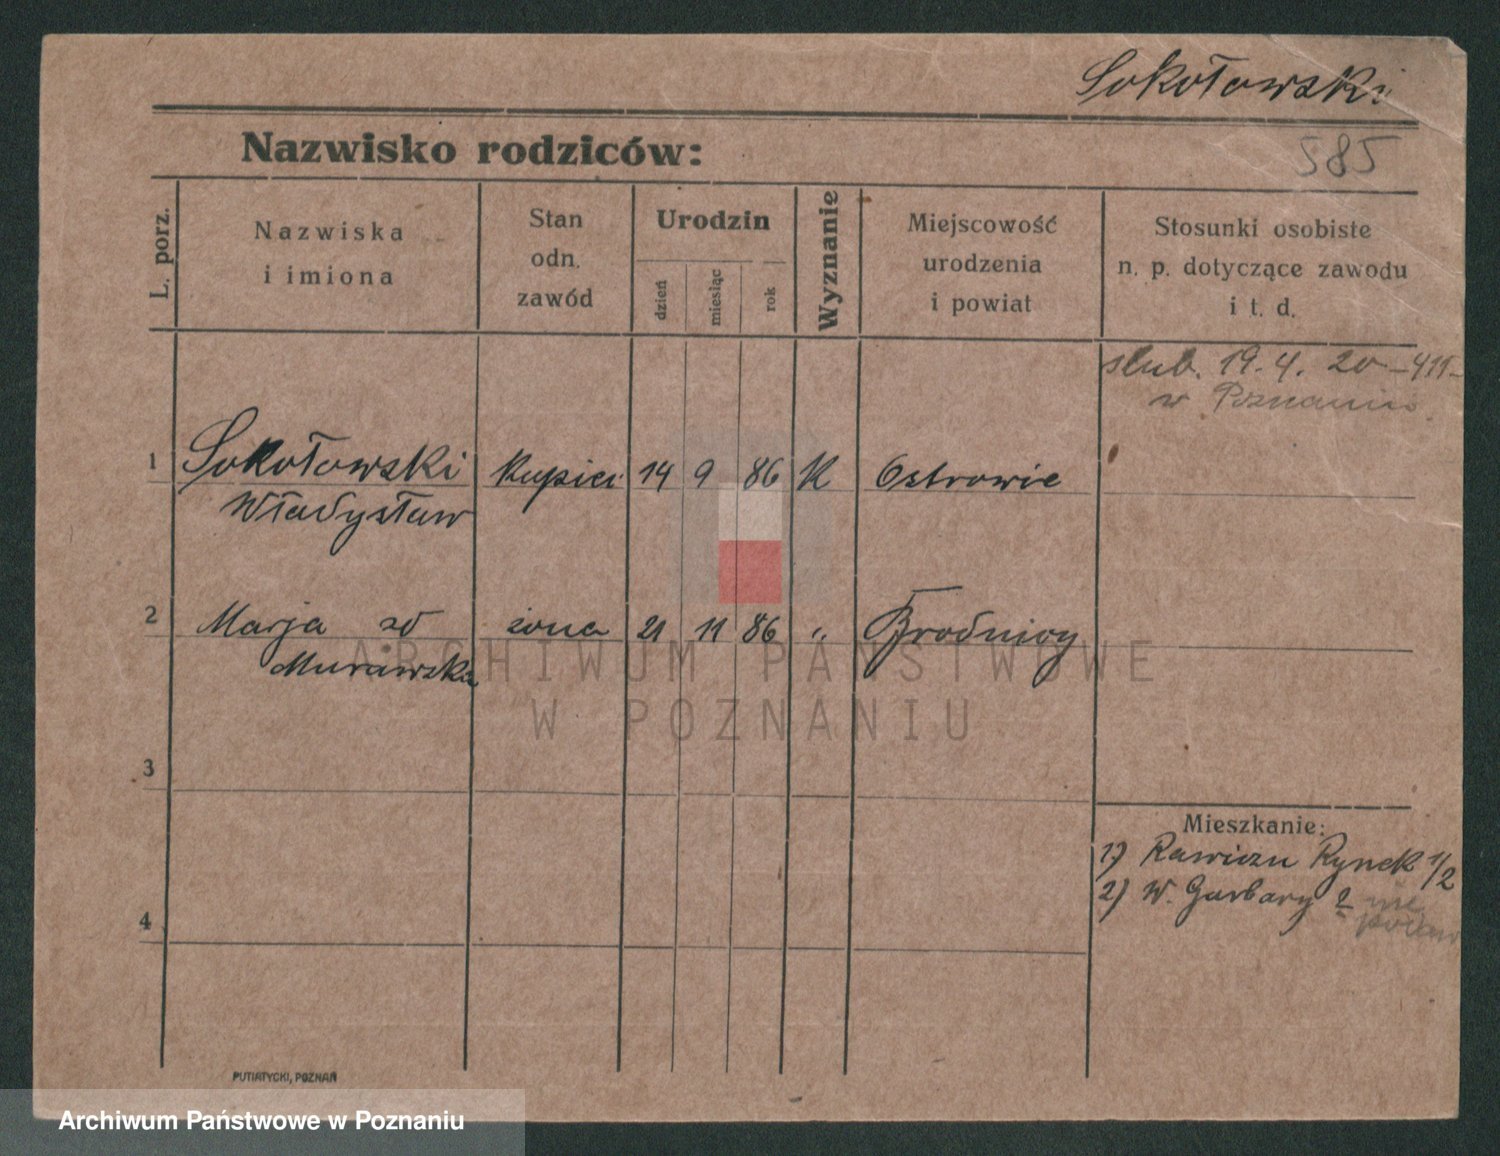 Sokołowski
Nazwisko rodziców:
585
L. porz.
Nazwiska
i imiona
Stan
odn.
zawód
Urodzin
dzień
miesiąc
rok
Wyznanie
Miejscowość
urodzenia
i powiat
Stosunki osobiste
n. p. dotyczące zawodu
i t. d.
slub. 19. 4. 20 - 411-
w Poznaniu
1 Sokołowski kupiec 14 9 86 K Ostrowie
Władysław
2 Marja zd żona 21 11 86 " Brodnicy
Murawska
3
4
Mieszkanie:
1) Rawiczu Rynek 1/2
2) W. Garbary 2 nie
PUTIATYCKI, POZNAŃ
ARCHIWUM PAŃSTWOWE
W POZNANIU
Archiwum Państwowe w Poznaniu